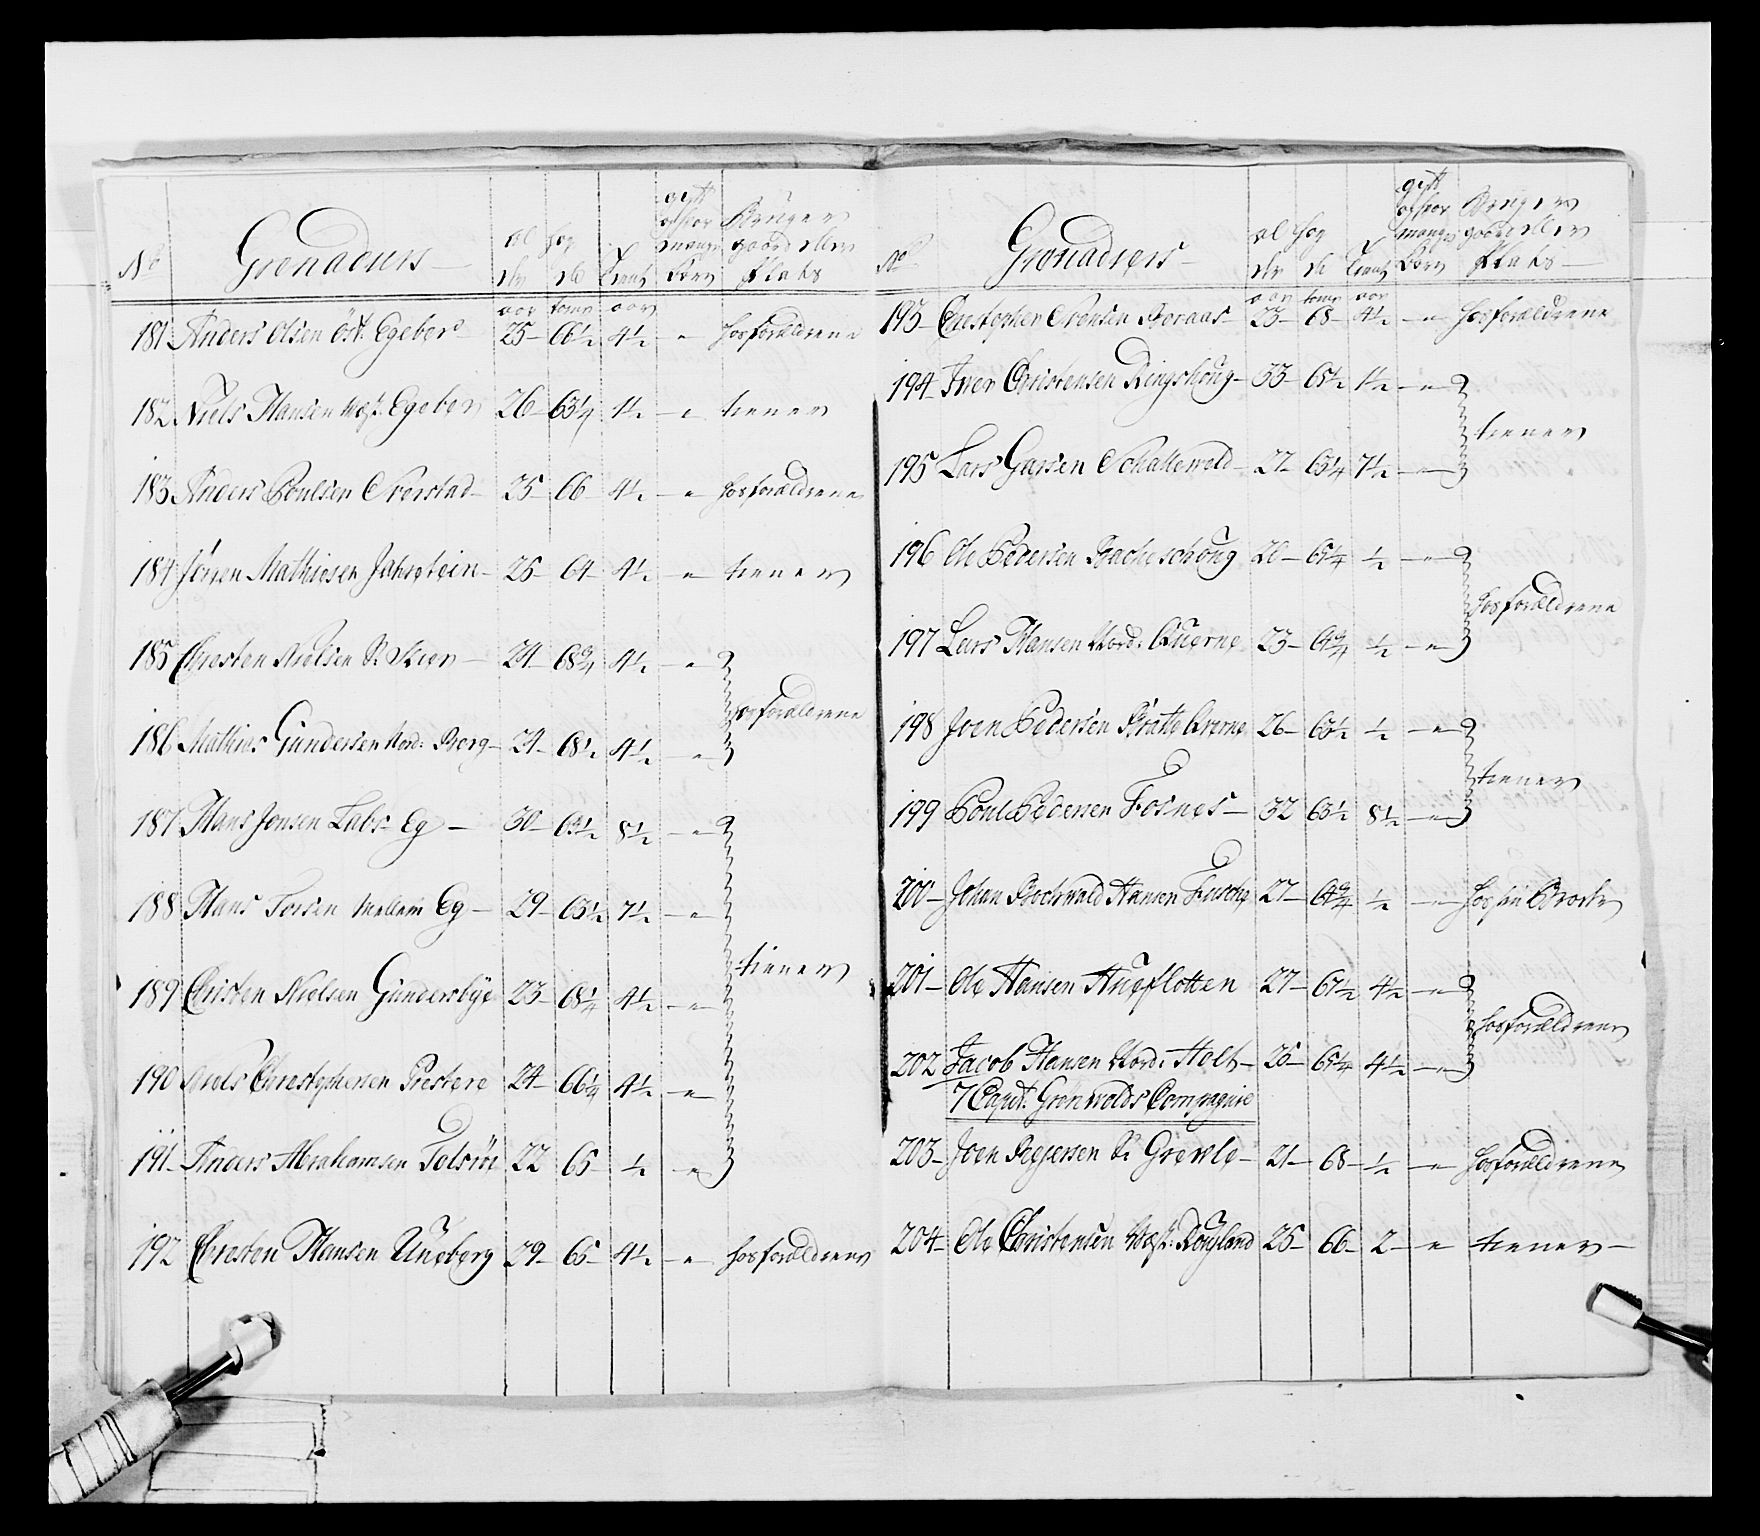 No Grenaders al der hog de Tient gift og hvor mange Børn Bruger gaard eller Plats
aar tomr aar
181 Anders Olsen Öst: Egeber 25 66½ 4½ - " hos foraeldrene
182 Niels Hansen Vest: Egeber 26 63¼ 1½ - " tiener
183 Anders Poulsen Overstad 25 66 4½ - " hos foraeldrene
184 Jören Mathiesen Jahrstein 25 64 4½ - " tiener
185 Christen Nielsen S: Skier 24 68¾ 4½ - "
hos foraeldrene
186 Mathies Gundersen Nord: Berg 24 68½ 4½ - "
187 Hans Jensen Labs Eg 30 64½ 8½ - "
188 Hans Torsen Mellem Eg 29 63½ 7½ - "
tiener
189 Christen Nielsen Gundersbÿe 23 68¼ 4½ - "
190 Niels Christophersen Prestere 24 66¼ 4½ - "
191 Anders Abrahamsen Tolsröe 22 65 ½ - "
192 Christen Hansen Uneberg 29 65 4½ - " hos foraeldrene
No Grenadiers al der hog de Tient gift og hvor mange Børn Bruger gaard eller Plats
aar tomr aar
193 Christopher Svensen Boraas 23 68 4½ - " hos foraeldrene
194 Iver Christensen Ringshoug 33 65½ 1½ - "
tiener
195 Lars Garsen Schallewold 27 63¼ 7½ - "
196 Ole Pedersen Backeschoug 20 65¼ ½ - "
hos foraeldrene
197 Lars Hansen Nord: Querne 23 64¾ ½ - "
198 Joen Pedersen Bratte Qverne 26 63½ ½ - "
tiener
199 Poul Pedersen Fosnes 32 63½ 8½ - "
200 Johan Bochwald Hansen Fuschg 27 64¾ ½ - " hos sin Broder
201 Ole Hansen Hueflotten 27 67½ 4½ - "
hos foraeldrene
202 Jacob Hansen Nord: Holt 25 65¼ 4½ - "
7 Capt: Grönwolds Compagnie
203 Joen Bejersen S: Grevle 21 68 ½ - " hos foraeldrene
204 Ole Christensen Vest: Rougland 25 66 2 - " tiener